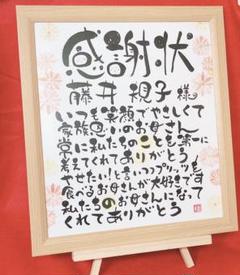 感謝状
藤井 規子 様
いつも笑顔でやさしくて
家族思いのお母さん
常に私たちのことを第一に
考えてくれてありがとう
やせたい!と言いつつプリッツを
食べるお母さんが大好きです
私たちのお母さんになって
くれてありがとう